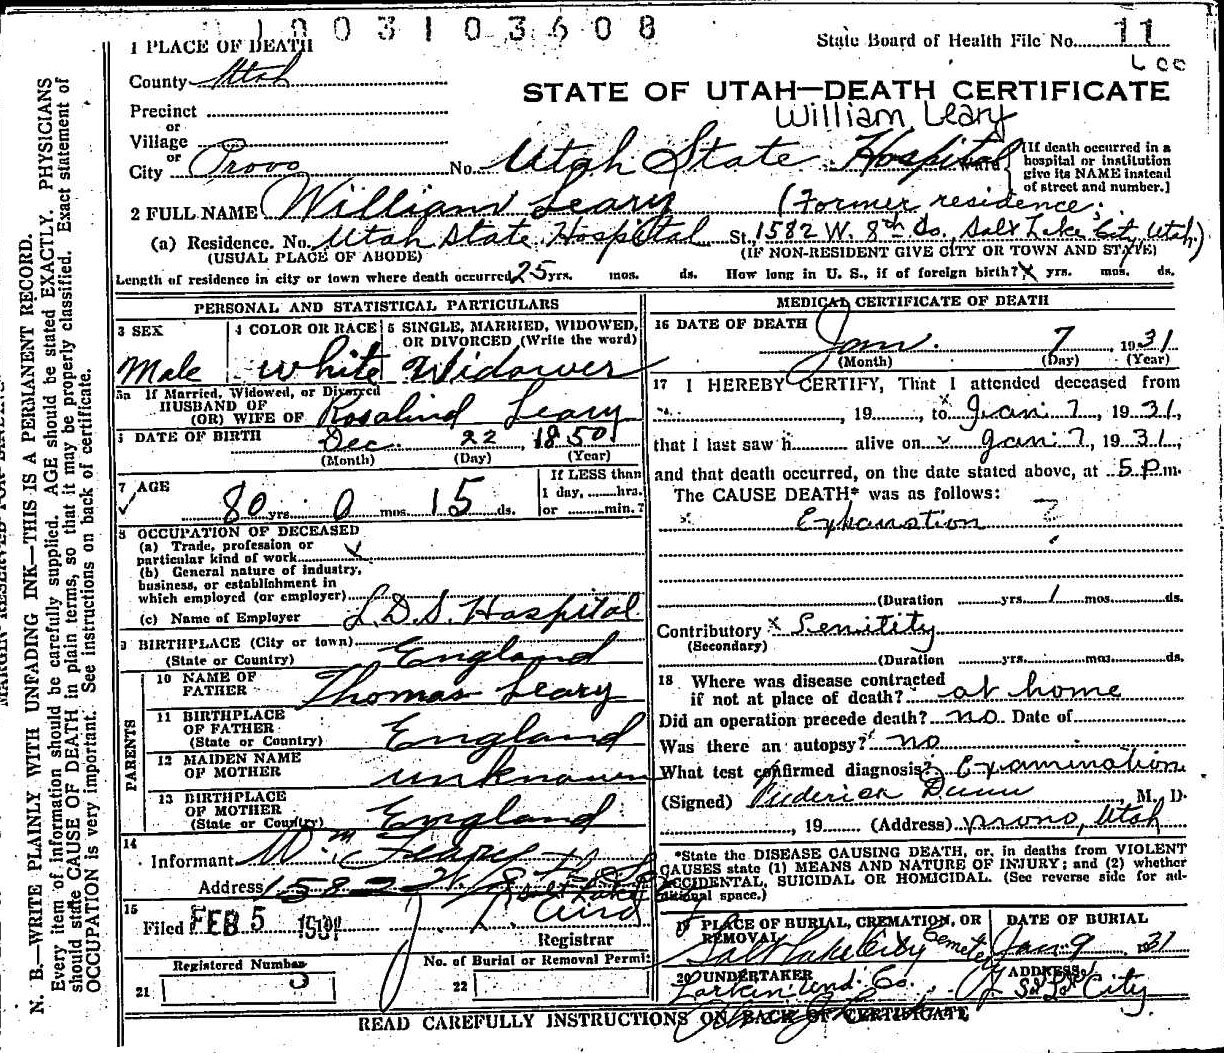 1003103608
State Board of Health File No. 11
1 PLACE OF DEATH
County Utah
STATE OF UTAH—DEATH CERTIFICATE
William Leary
Precinct
or
Village
or
City Provo No. Utah State Hospital Ward
[If death occurred in a hospital or institution give its NAME instead of street and number.]
2 FULL NAME William Leary (Former residence;
(a) Residence. No. Utah State Hospital St., 1582 W. 8th So. Salt Lake City, Utah)
(USUAL PLACE OF ABODE) (IF NON-RESIDENT GIVE CITY OR TOWN AND STATE)
Length of residence in city or town where death occurred 25 yrs. mos. ds. How long in U. S., if of foreign birth? x yrs. mos. ds.
PERSONAL AND STATISTICAL PARTICULARS
3 SEX
Male
4 COLOR OR RACE
White
5 SINGLE, MARRIED, WIDOWED, OR DIVORCED (Write the word)
Widower
5a If Married, Widowed, or Divorced
HUSBAND OF
(OR) WIFE OF Rosalind Leary
6 DATE OF BIRTH Dec. 22, 1850
(Month) (Day) (Year)
7 AGE
80 yrs. 0 mos. 15 ds.
If LESS than
1 day, hrs.
or min.?
8 OCCUPATION OF DECEASED
(a) Trade, profession or
particular kind of work
(b) General nature of industry,
business, or establishment in
which employed (or employer)
(c) Name of Employer L.D.S. Hospital
9 BIRTHPLACE (City or town)
(State or Country) England
PARENTS
10 NAME OF
FATHER Thomas Leary
11 BIRTHPLACE
OF FATHER
(State or Country) England
12 MAIDEN NAME
OF MOTHER unknown
13 BIRTHPLACE
OF MOTHER
(State or Country) England
14
Informant Wm Leary
Address 1582 W. 8 Salt Lake
15
Filed FEB 5 1931
Registrar
Registered Number
21 3
No. of Burial or Removal Permit
22
MEDICAL CERTIFICATE OF DEATH
16 DATE OF DEATH
Jan. 7 1931
(Month) (Day) (Year)
17 I HEREBY CERTIFY, That I attended deceased from
, 19, to Jan 7, 1931,
that I last saw h alive on Jan 7, 1931,
and that death occurred, on the date stated above, at 5 P.m.
The CAUSE DEATH* was as follows:
Exhaustion ?
(Duration yrs. 1 mos. ds.
Contributory x Senility
(Secondary)
(Duration yrs. mos. ds.
18 Where was disease contracted
if not at place of death? at home
Did an operation precede death? no Date of
Was there an autopsy? no
What test confirmed diagnosis? Examination
(Signed) Frederick Dunn M. D.
, 19 (Address) Provo, Utah
*State the DISEASE CAUSING DEATH, or, in deaths from VIOLENT
CAUSES state (1) MEANS AND NATURE OF INJURY; and (2) whether
ACCIDENTAL, SUICIDAL OR HOMICIDAL. (See reverse side for additional space.)
19 PLACE OF BURIAL, CREMATION, OR
REMOVAL
Salt Lake City Cemetery
DATE OF BURIAL
Jan 9 1931
20 UNDERTAKER
Larkin Und. Co.
ADDRESS
S. Lake City
READ CAREFULLY INSTRUCTIONS ON BACK OF CERTIFICATE
N. B.—WRITE PLAINLY WITH UNFADING INK—THIS IS A PERMANENT RECORD.
Every item of information should be carefully supplied. AGE should be stated EXACTLY. PHYSICIANS
should state CAUSE OF DEATH in plain terms, so that it may be properly classified. Exact statement of
OCCUPATION is very important. See instructions on back of certificate.